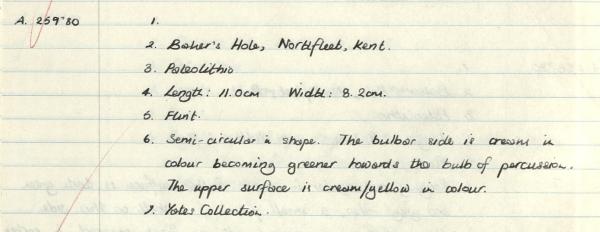 A. 259'80 1.
2. Baker's Hole, Northfleet, Kent.
3. Paleolithic
4. Length: 11.0cm Width: 8.2cm.
5. Flint.
6. Semi-circular in shape. The bulbar side is cream in
colour becoming greener towards the bulb of percussion.
The upper surface is cream/yellow in colour.
7. Yates Collection.